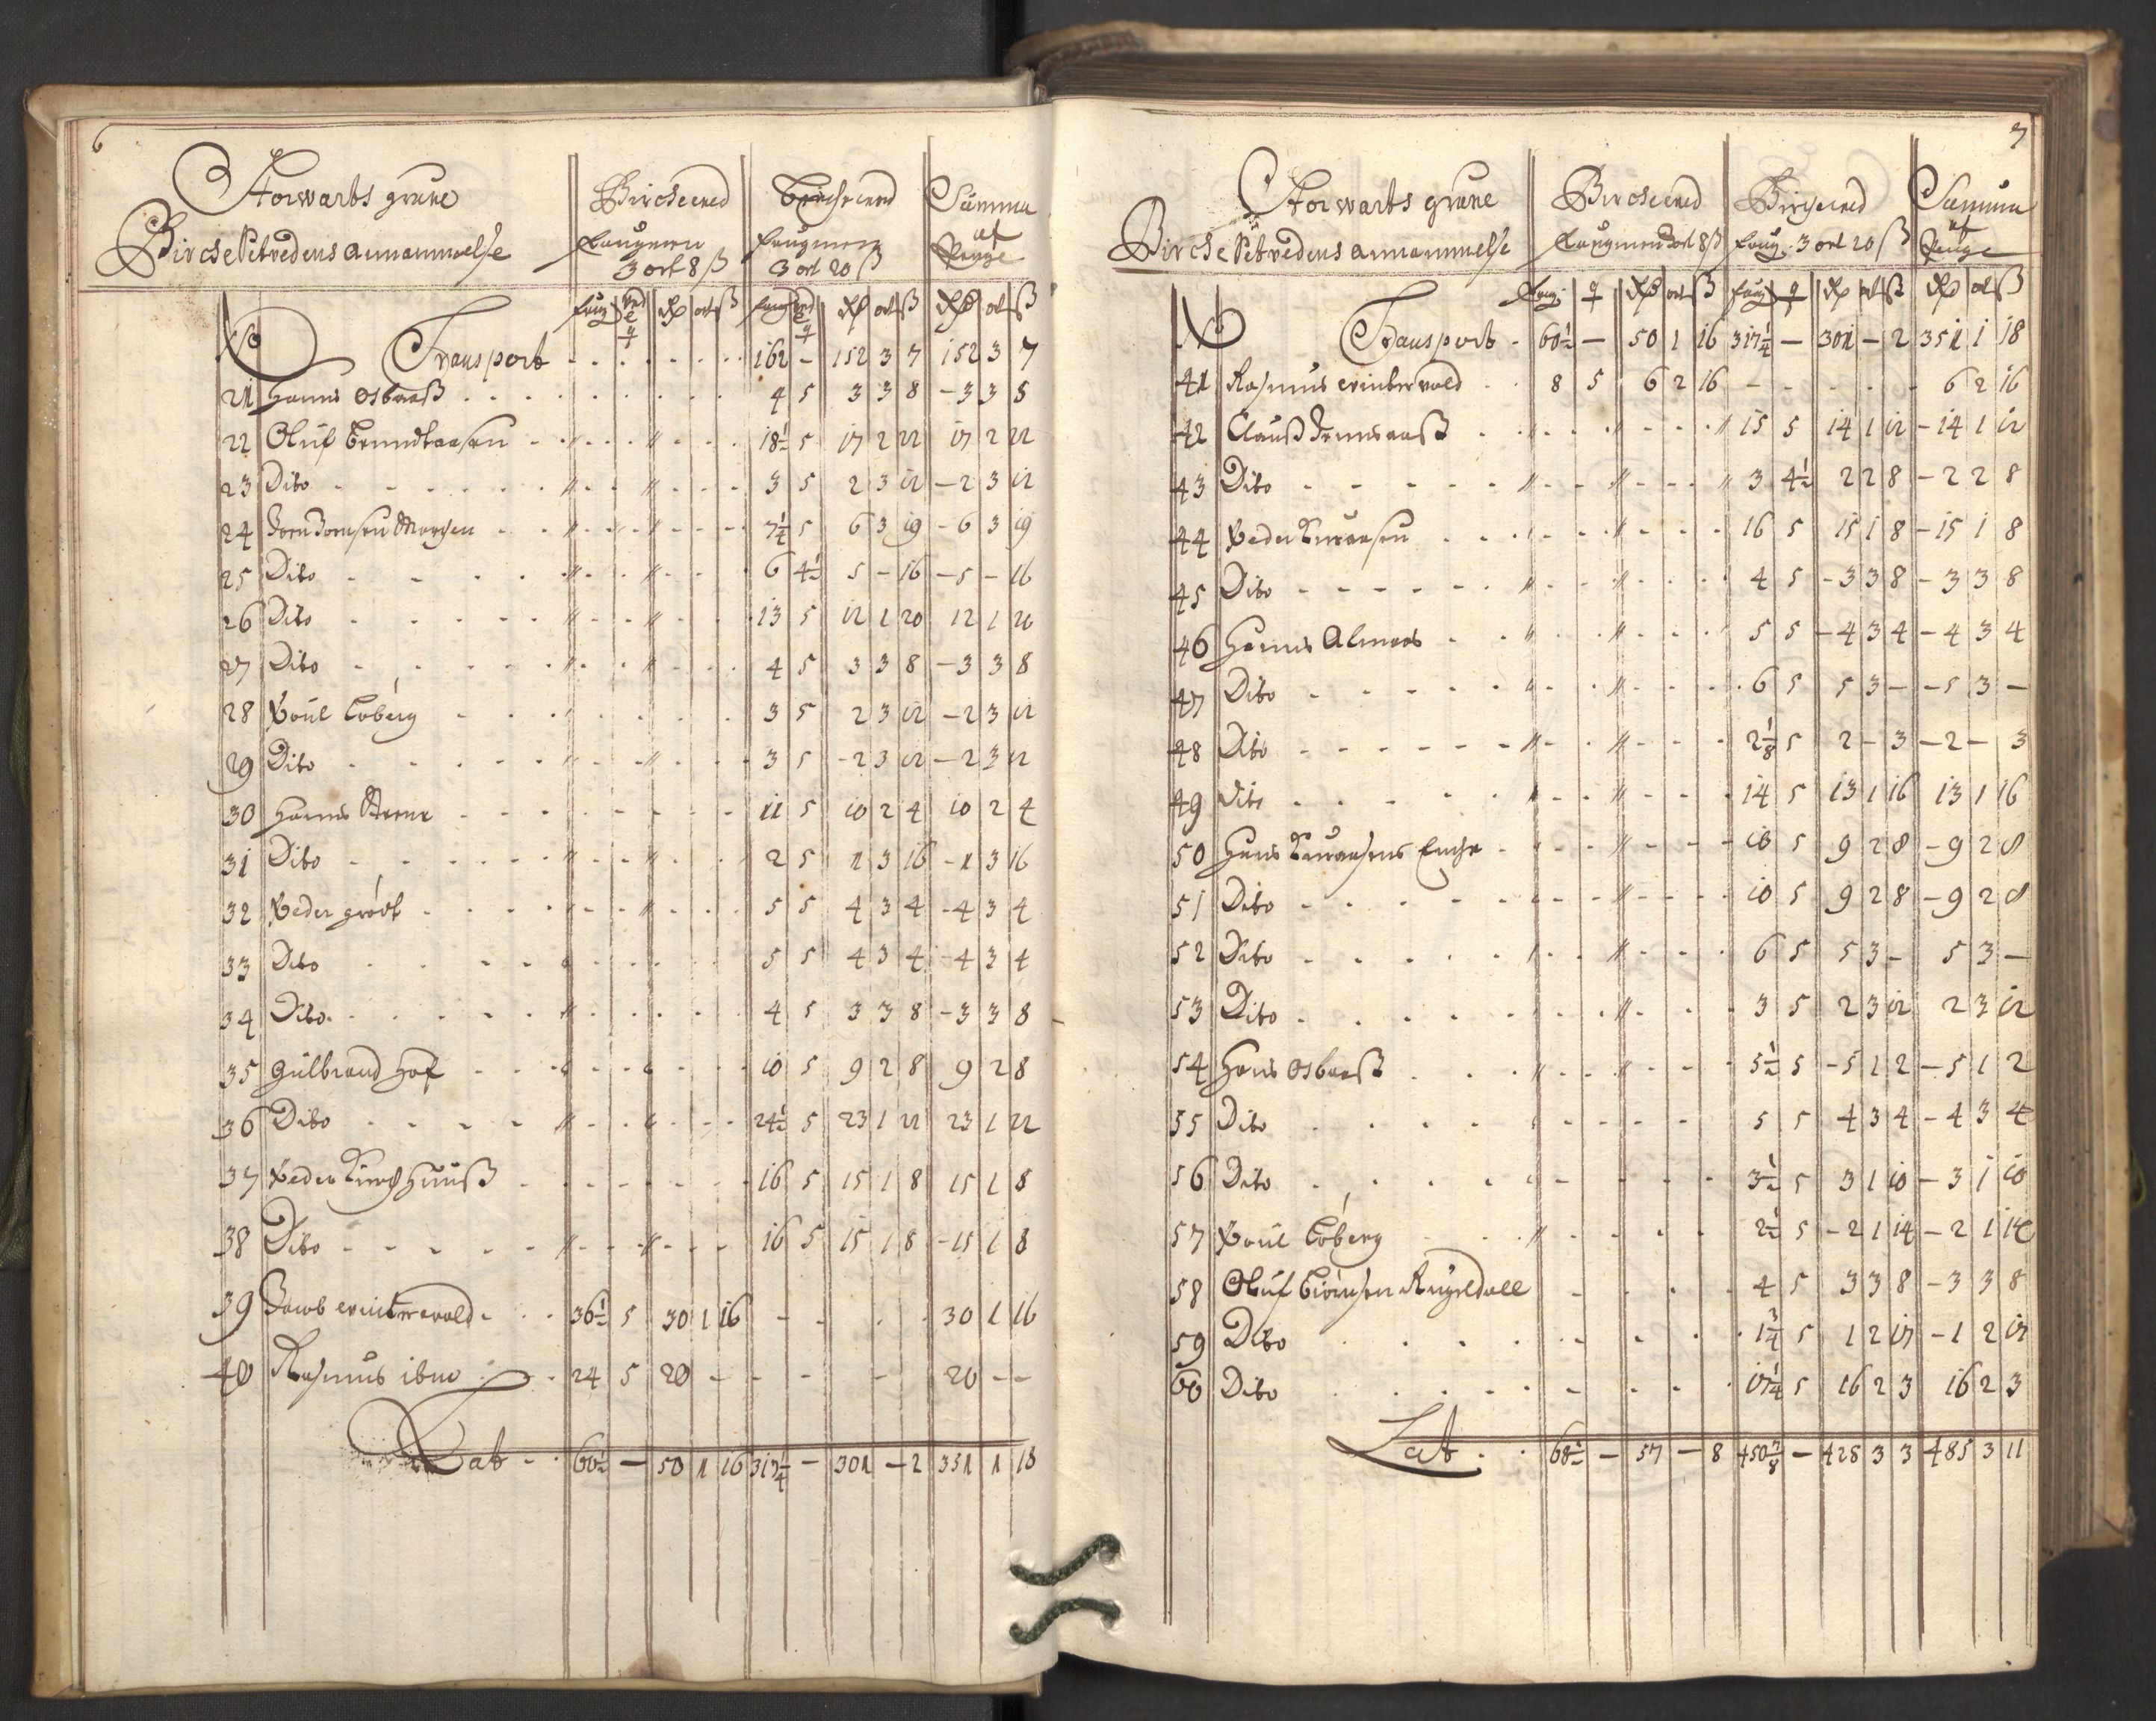 6
Storwarts grube
Birche Vetvedens annammelse
Bircheved
faugnen
3 ort 8 ß
Bircheved
faugnen
3 ort 20 ß
Summa
af
Penge
faug ort ß ort ß ort ß
No Transport 162 – 152 3 7 152 3 7
21 Hanns Osbarß 4 5 3 3 8 – 3 3 8
22 Oluf 18½ 5 17 2 22 17 2 22
23 Dito 3 5 2 3 12 – 2 3 12
24 7¼ 5 6 3 19 – 6 3 19
25 Dito 6 4½ 5 – 16 – 5 – 16
26 Dito 13 5 12 1 20 12 1 20
27 Dito 4 5 3 3 8 – 3 3 8
28 Poül Coberg 3 5 2 3 12 – 2 3 12
29 Dito 3 5 – 2 3 12 – 2 3 12
30 Hanns 11 5 10 2 4 10 2 4
31 Dito 2 5 1 3 16 – 1 3 16
32 Peder grödt 5 5 4 3 4 – 4 3 4
33 Dito 5 5 4 3 4 – 4 3 4
34 Dito 4 5 3 3 8 – 3 3 8
35 Gülbrand Hof 10 5 9 2 8 9 2 8
36 Dito 24½ 5 23 1 22 23 1 22
37 Peder Kirchhuuß 16 5 15 1 8 15 1 8
38 Dito 16 5 15 1 8 – 15 1 8
39 Jacob wintervold 36½ 5 30 1 16 30 1 16
40 Rasmus ibm 24 5 20 – – 20 – –
Lat 60½ – 50 1 16 317¼ – 301 – 2 351 1 18
7
Storwarts grube
Birche Vetvedens annammelse
Bircheved
faugnen 3 ort 8 ß
Bircheved
faug. 3 ort 20 ß
Summa
af
Penge
faug ort ß faug ort ß ort ß
No Transport 60½ – 50 1 16 317¼ – 301 – 2 351 1 18
41 Rasmus wintervold 8 5 6 2 16 – 6 2 16
42 Clauß 15 5 14 1 12 – 14 1 12
43 Dito 3 4½ 2 2 8 – 2 2 8
44 Peder 16 5 15 1 8 – 15 1 8
45 Dito 4 5 – 3 3 8 – 3 3 8
46 Hanns Almaas 5 5 – 4 3 4 – 4 3 4
47 Dito 6 5 5 3 – – 5 3 –
48 Dito 2⅛ 5 2 – 3 – 2 – 3
49 Dito 14 5 13 1 16 13 1 16
50 Hans 10 5 9 2 8 – 9 2 8
51 Dito 10 5 9 2 8 – 9 2 8
52 Dito 6 5 5 3 – 5 3 –
53 Dito 3 5 2 3 12 2 3 12
54 Hans Osbarß 5½ 5 – 5 1 2 – 5 1 2
55 Dito 5 5 4 3 4 – 4 3 4
56 Dito 3½ 5 3 1 10 – 3 1 10
57 Poül Coberg 2½ 5 – 2 1 14 – 2 1 14
58 Oluf 4 5 3 3 8 – 3 3 8
59 Dito 1¾ 5 1 2 17 – 1 2 17
60 Dito 17¼ 5 16 2 3 16 2 3
Lat 68½ – 57 – 8 450⅞ – 428 3 3 485 3 11